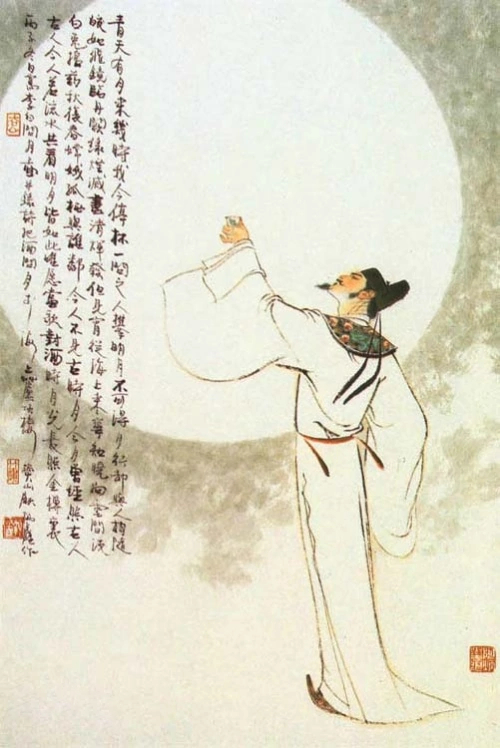 青天有月来幾時我今停杯一問之人攀明月不可得月行却與人相隨
皎如飛鏡臨丹闕緑煙滅盡清輝發但見宵從海上來寧知曉向雲間没
白兔擣藥秋復春嫦娥孤栖與誰鄰今人不見古時月今月曾經照古人
古人今人若流水共看明月皆如此唯願當歌對酒時月光長照金樽裏
丙子冬日寫李白問月並錄詩把酒問月于海上